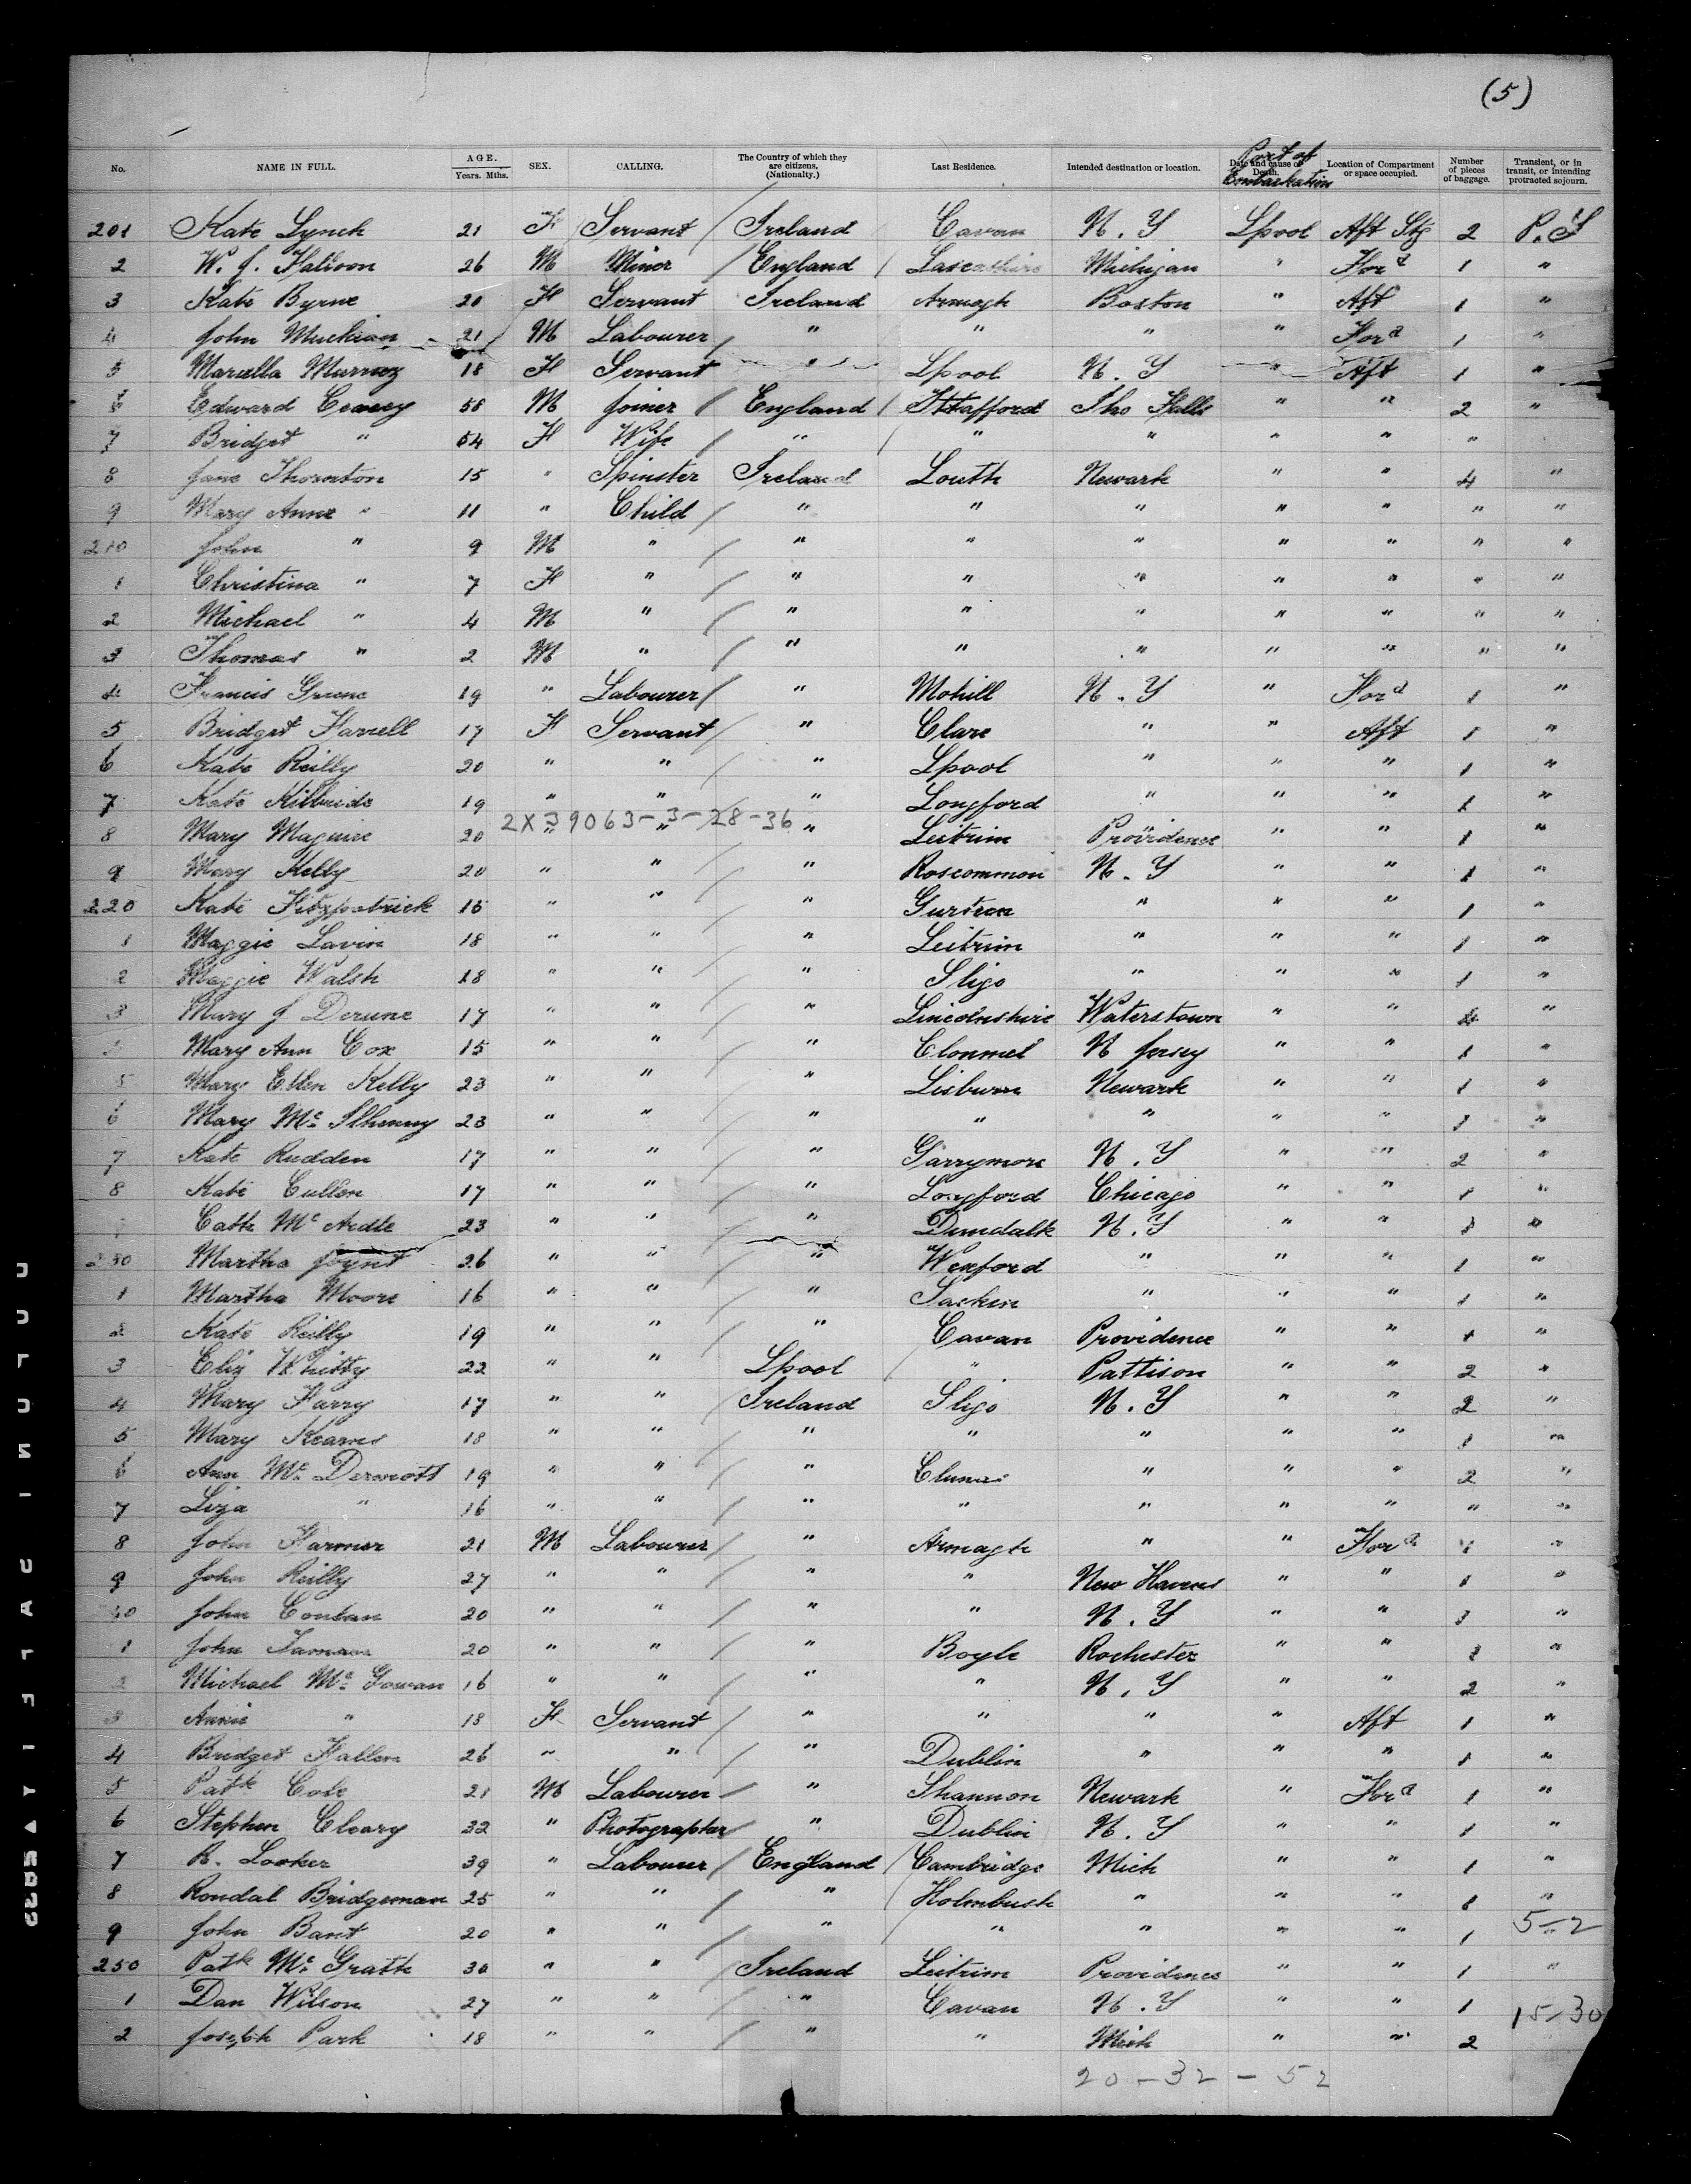 (5)
No. NAME IN FULL. AGE. Years. Mths. SEX. CALLING. The Country of which they are citizens, (Nationalty.) Last Residence. Intended destination or location. Date and cause of Death. Port of Embarkation Location of Compartment or space occupied. Number of pieces of baggage. Transient, or in transit, or intending protracted sojourn.
201 Kate Lynch 21 F Servant Ireland Cavan N. Y Lpool Aft Stg 2 P. S
2 W. J. 26 M Miner England Lancashire Michigan " Ford 1 "
3 Kate Byrne 20 F Servant Ireland Armagh Boston " Aft 1 "
4 John 21 M Labourer " " " " Ford 1 "
5 Marcella Murray 18 F Servant " Lpool N. Y " Aft 1 "
6 Edward 58 M Joiner England Stafford Falls " " 2 "
7 Bridget " 54 F Wife " " " " " "
8 Jane Thornton 15 " Spinster Ireland Louth Newark " " 4 "
9 Mary Anne " 11 " Child " " " " " " "
210 John " 9 M " " " " " " " "
1 Christina " 7 F " " " " " " " "
2 Michael " 4 M " " " " " " " "
3 Thomas " 2 M " " " " " " " "
4 Francis Greene 19 " Labourer " Mohill N. Y " Ford 1 "
5 Bridget Farrell 17 F Servant " Clare " " Aft 1 "
6 Kate Reilly 20 " " " Lpool " " " 1 "
7 Kate Kilbride 19 " " " Longford " " " 1 "
2X39063-3-28-36
8 Mary Maguire 20 " " " Leitrim Providence " " 1 "
9 Mary Kelly 20 " " " Roscommon N. Y " " 1 "
220 Kate Fitzpatrick 15 " " " Gurteen " " " 1 "
1 Maggie Lavin 18 " " " Leitrim " " " 1 "
2 Maggie Walsh 18 " " " Sligo " " " 1 "
3 Mary J 17 " " " Lincolnshire Waterstown " " "
Mary Ann Cox 15 " " " Clonmel N Jersey " " 1 "
5 Mary Ellen Kelly 23 " " " Lisburn Newark " " 1 "
6 Mary Mc Ilhenny 23 " " " " " " " 1 "
7 Kate Rudden 17 " " " Garrymore N. Y " " 2 "
8 Kate Cullen 17 " " " Longford Chicago " " 1 "
Cath Mc Ardle 23 " " " Dundalk N. Y " " 1 "
230 Martha Joynt 26 " " " Wexford " " " 1 "
1 Martha Moore 16 " " " " " " 1 "
2 Kate Reilly 19 " " " Cavan Providence " " 1 "
3 Eliz Whitty 22 " " Lpool " Pattison " " 2 "
4 Mary Farry 17 " " Ireland Sligo N. Y " " 2 "
5 Mary Kearns 18 " " " " " " " 1 "
6 Ann Mc Dermott 19 " " " " " " 2 "
7 Liza " 16 " " " " " " " " "
8 John Farmer 21 M Labourer " Armagh " " Ford 1 "
9 John Reilly 27 " " " " New Haven " " 1 "
40 John 20 " " " " N. Y " " 1 "
1 John 20 " " " Boyle Rochester " " 1 "
2 Michael Mc Gowan 16 " " " " N. Y " " 2 "
3 Annie " 18 F Servant " " " " Aft 1 "
4 Bridget Fallon 26 " " " Dublin " " " 1 "
5 Patk Cole 21 M Labourer " Shannon Newark " Ford 1 "
6 Stephen Cleary 32 " Photographer " Dublin N. Y " " 1 "
7 R. Looker 39 " Labourer England Cambridge Mich " " 1 "
8 Rondal Bridgeman 25 " " " Holmbush " " " 1 "
9 John Bant 20 " " " " " " " 1 5-2
250 Patk Mc Grath 30 " " Ireland Leitrim Providence " " 1 "
1 Dan Wilson 27 " " " Cavan N. Y " " 1 15-30
2 Joseph Park 18 " " " " Mich " " 2
20-32-52